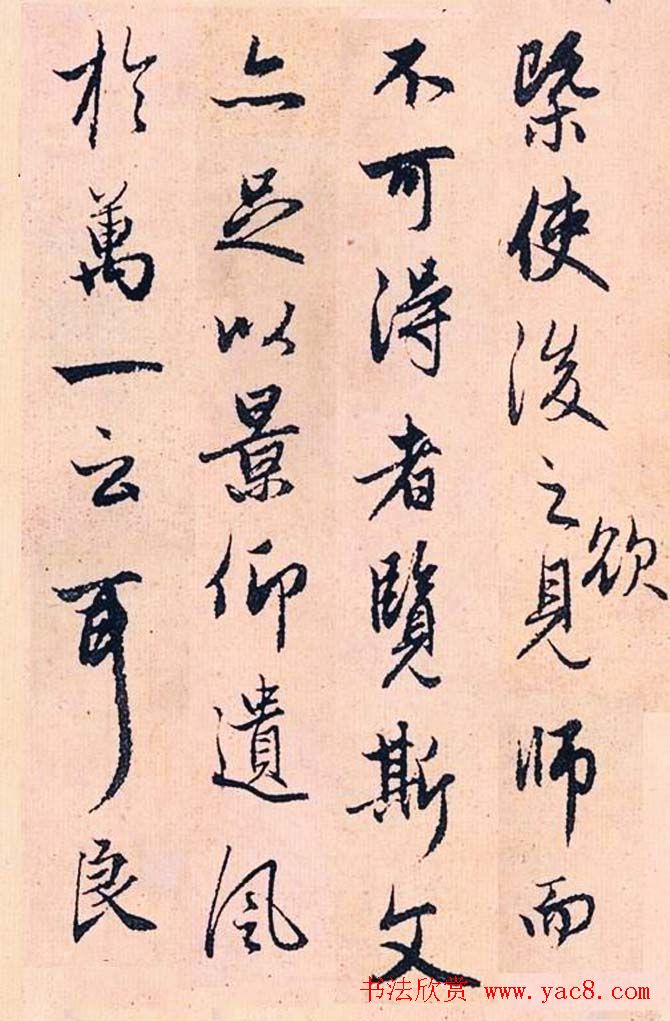 槩使後之欲見師而
不可得者覽斯文
亦足以景仰遺風
於萬一云耳良
书法欣赏 www.yac8.com